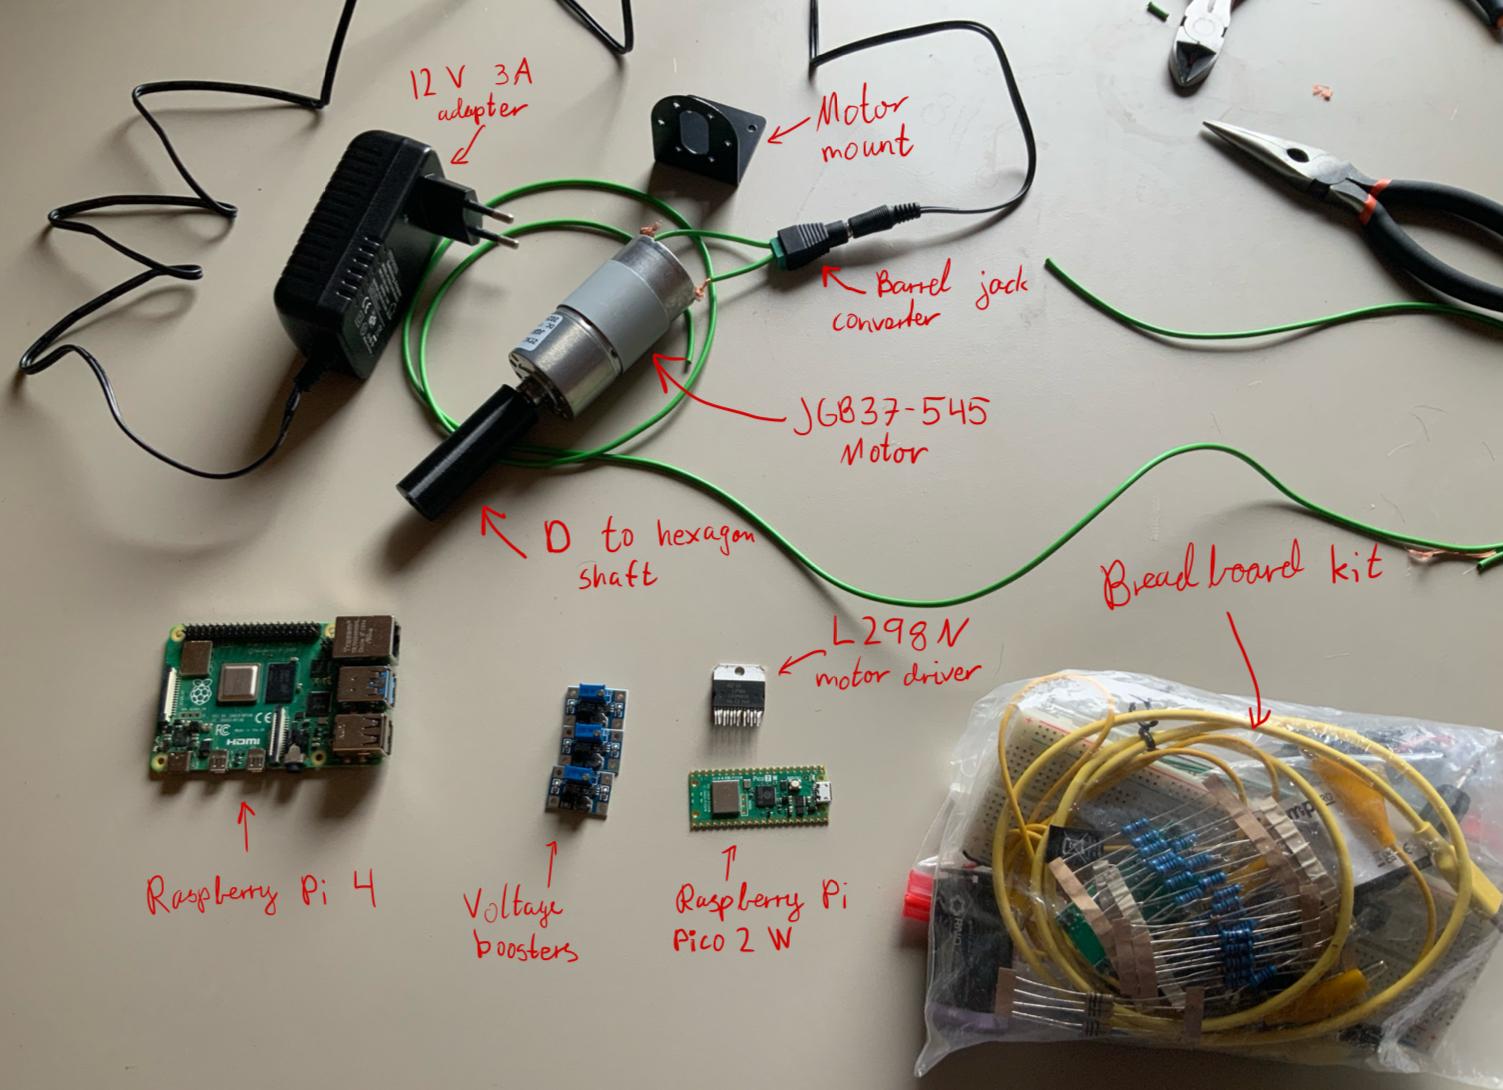 12 V 3A
adapter
Motor
mount
Barrel jack
converter
JGB37-545
Motor
D to hexagon
shaft
Breadboard kit
L298N
motor driver
HDMI
Raspberry Pi 4
Voltage
boosters
Raspberry Pi
Pico 2 W